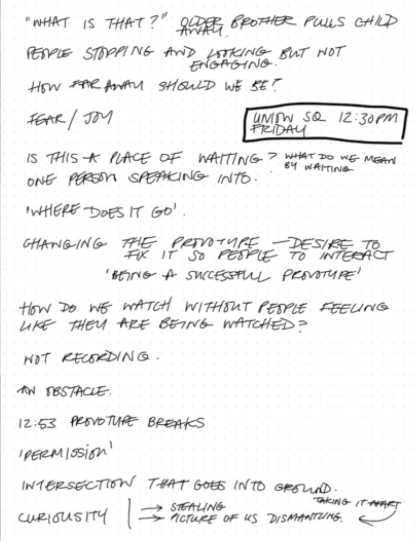 "WHAT IS THAT?" OLDER BROTHER PULLS CHILD
AWAY.
PEOPLE STOPPING AND LOOKING BUT NOT
ENGAGING.
HOW FAR AWAY SHOULD WE BE?
FEAR/JOY
UNION SQ 12:30PM
FRIDAY
IS THIS A PLACE OF WAITING? WHAT DO WE MEAN
BY WAITING
ONE PERSON SPEAKING INTO.
'WHERE DOES IT GO'.
CHANGING THE PROVOTYPE – DESIRE TO
FIX IT SO PEOPLE TO INTERACT
'BEING A SUCCESSFUL PROVOTYPE'
HOW DO WE WATCH WITHOUT PEOPLE FEELING
LIKE THEY ARE BEING WATCHED?
NOT RECORDING.
AN OBSTACLE.
12:53 PROVOTYPE BREAKS
'PERMISSION'
INTERSECTION THAT GOES INTO GROUND.
TAKING IT APART
CURIOUSITY → STEALING
→ PICTURE OF US DISMANTLING.